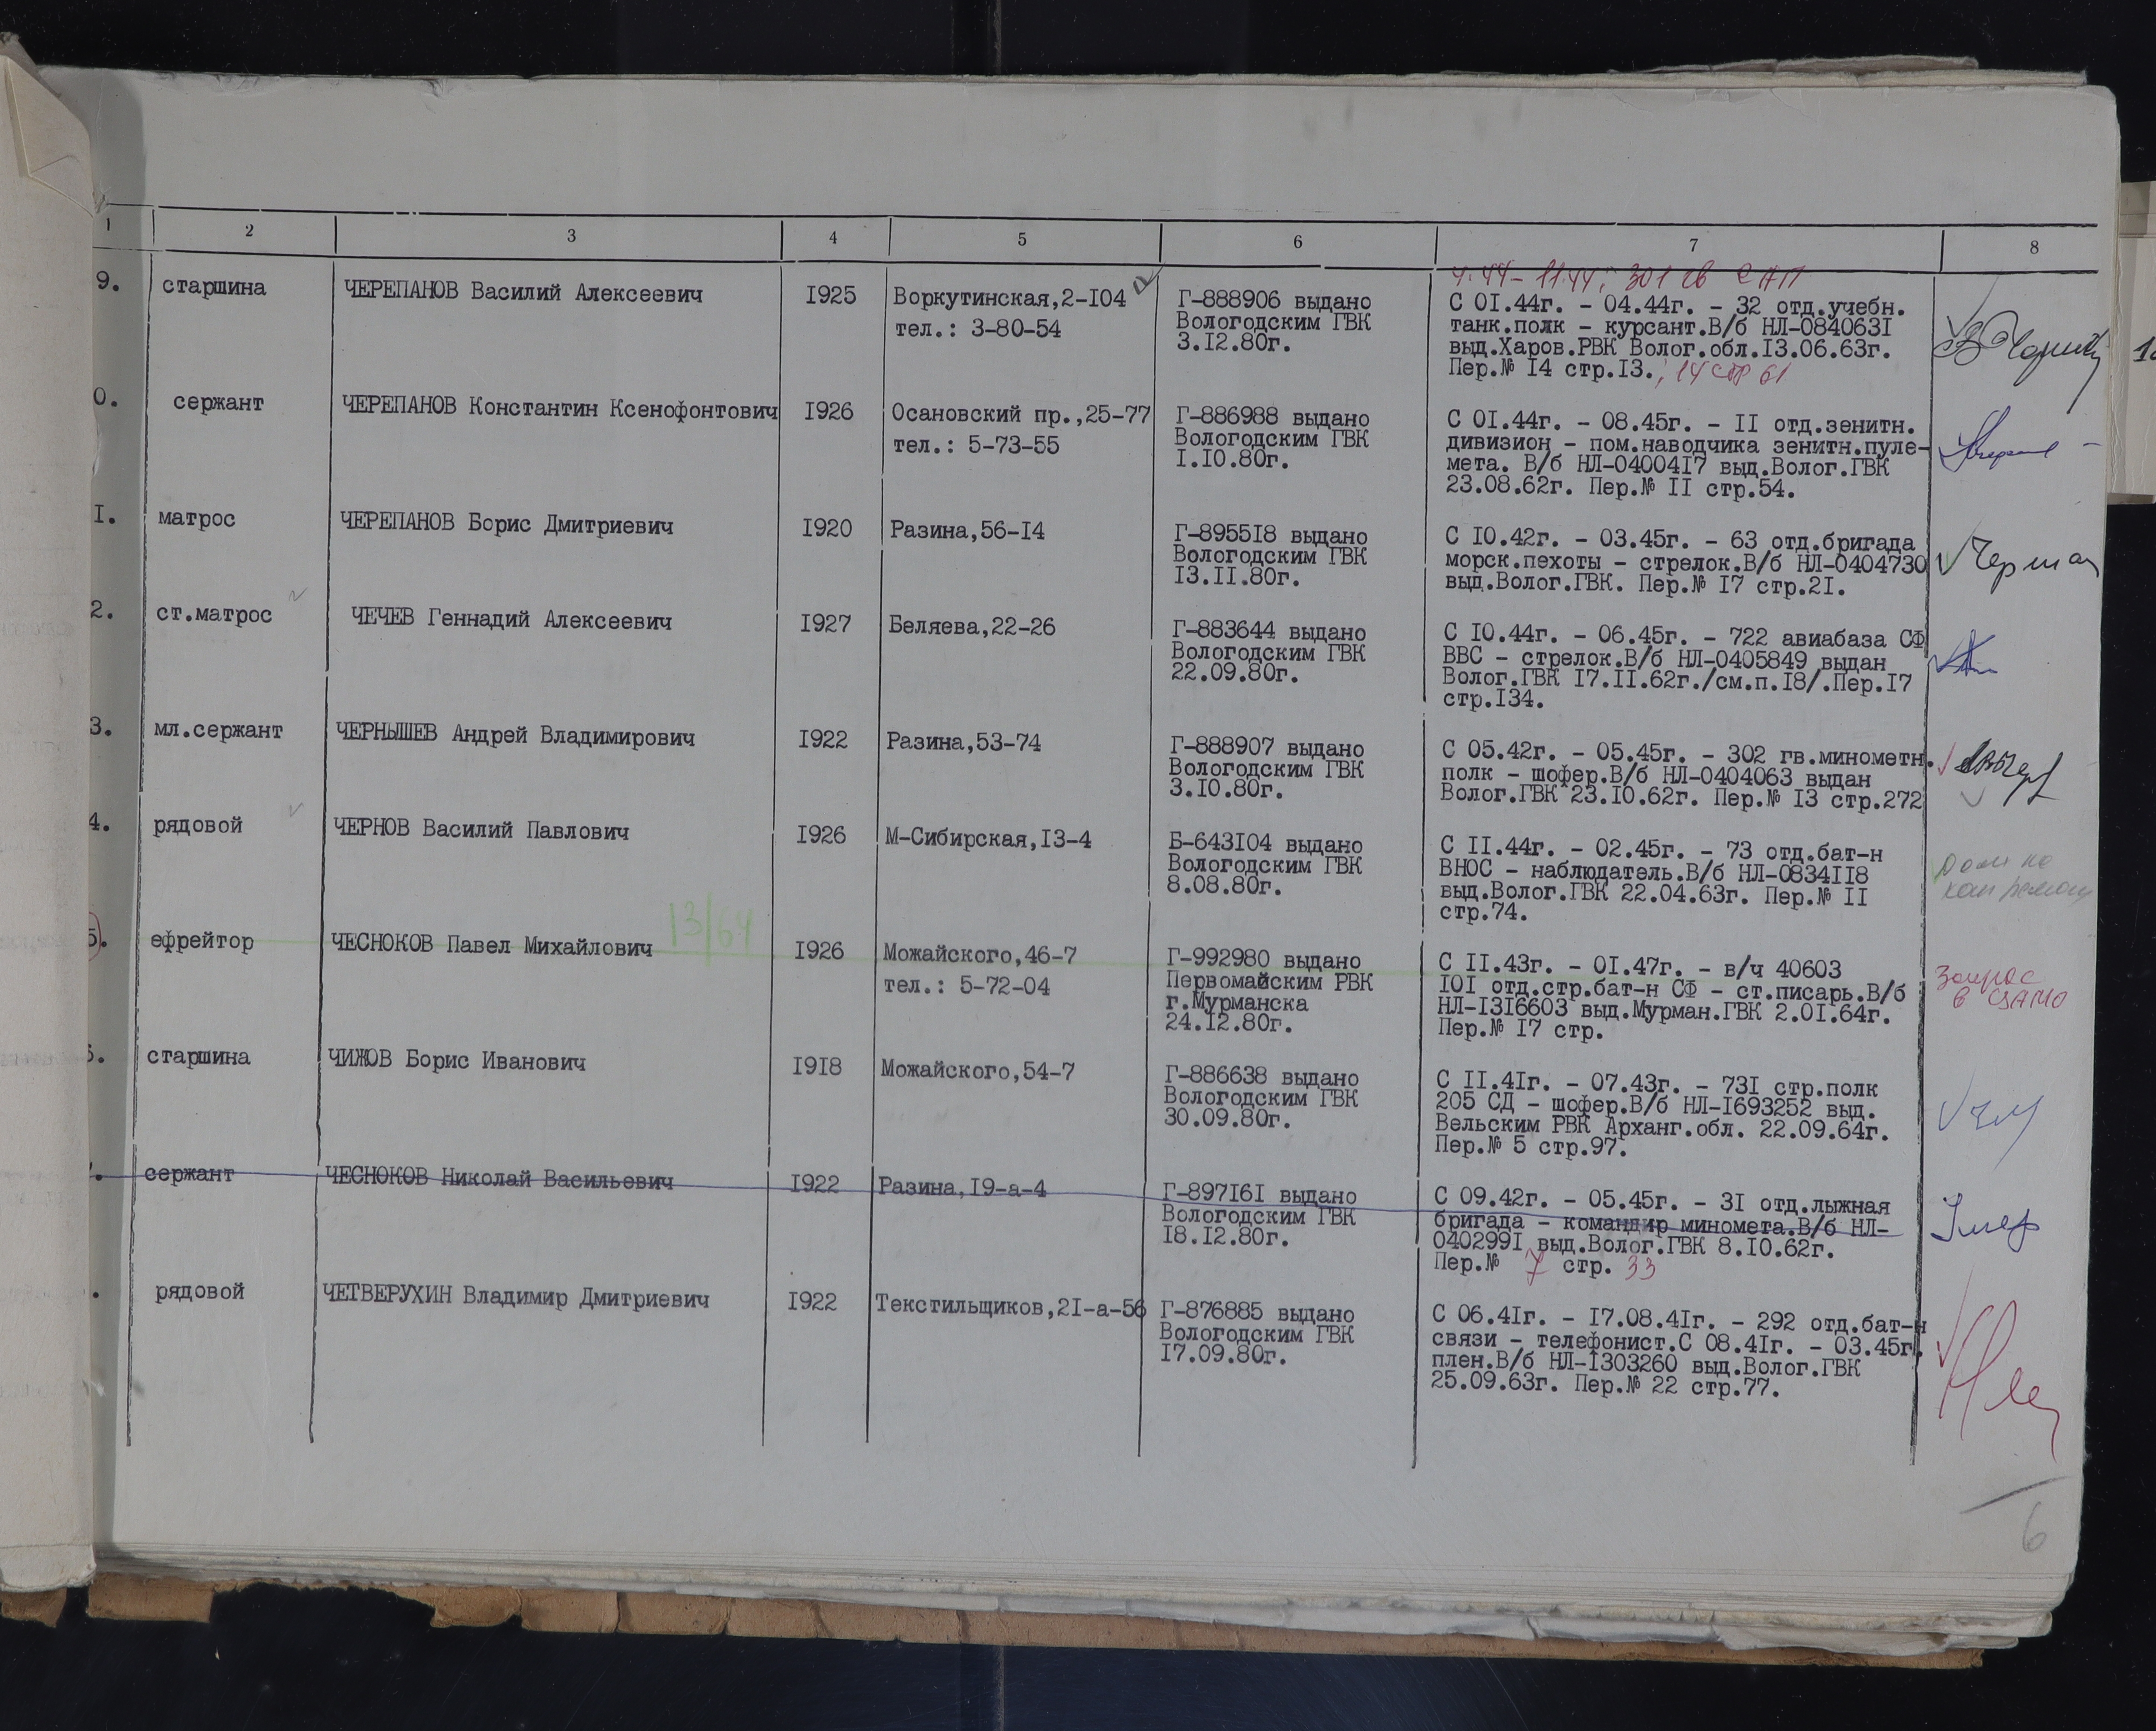 1 2 3 4 5 6 7 8
4.44-11.44; 301 гв САП
9. старшина ЧЕРЕПАНОВ Василий Алексеевич 1925 Воркутинская,2-104 Г-888906 выдано С 01.44г. - 04.44г. - 32 отд.учебн.
тел.: 3-80-54 Вологодским ГВК танк.полк - курсант.В/б НЛ-0840631
3.12.80г. выд.Харов.РВК Волог.обл.13.06.63г.
Пер.№ 14 стр.13.; 14 стр 61
0. сержант ЧЕРЕПАНОВ Константин Ксенофонтович 1926 Осановский пр.,25-77 Г-886988 выдано С 01.44г. - 08.45г. - 11 отд.зенитн.
тел.: 5-73-55 Вологодским ГВК дивизион - пом.наводчика зенитн.пуле-
1.10.80г. мета. В/б НЛ-0400417 выд.Волог.ГВК
23.08.62г. Пер.№ 11 стр.54.
1. матрос ЧЕРЕПАНОВ Борис Дмитриевич 1920 Разина,56-14 Г-895518 выдано С 10.42г. - 03.45г. - 63 отд.бригада
Вологодским ГВК морск.пехоты - стрелок.В/б НЛ-0404730
13.11.80г. выд.Волог.ГВК. Пер.№ 17 стр.21.
2. ст.матрос ЧЕЧЕВ Геннадий Алексеевич 1927 Беляева,22-26 Г-883644 выдано С 10.44г. - 06.45г. - 722 авиабаза СФ
Вологодским ГВК ВВС - стрелок.В/б НЛ-0405849 выдан
22.09.80г. Волог.ГВК 17.11.62г./см.п.18/.Пер.17
стр.134.
3. мл.сержант ЧЕРНЫШЕВ Андрей Владимирович 1922 Разина,53-74 Г-888907 выдано С 05.42г. - 05.45г. - 302 гв.минометн.
Вологодским ГВК полк - шофер.В/б НЛ-0404063 выдан
3.10.80г. Волог.ГВК 23.10.62г. Пер.№ 13 стр.272
4. рядовой ЧЕРНОВ Василий Павлович 1926 М-Сибирская,13-4 Б-643104 выдано С 11.44г. - 02.45г. - 73 отд.бат-н
Вологодским ГВК ВНОС - наблюдатель.В/б НЛ-0834118
8.08.80г. выд.Волог.ГВК 22.04.63г. Пер.№ 11
стр.74.
13/64
5. ефрейтор ЧЕСНОКОВ Павел Михайлович 1926 Можайского,46-7 Г-992980 выдано С 11.43г. - 01.47г. - в/ч 40603 запрос
тел.: 5-72-04 Первомайским РВК 101 отд.стр.бат-н СФ - ст.писарь.В/б в ЦАМО
г.Мурманска НЛ-1316603 выд.Мурман.ГВК 2.01.64г.
24.12.80г. Пер.№ 17 стр.
6. старшина ЧИЖОВ Борис Иванович 1918 Можайского,54-7 Г-886638 выдано С 11.41г. - 07.43г. - 731 стр.полк
Вологодским ГВК 205 СД - шофер.В/б НЛ-1693252 выд.
30.09.80г. Вельским РВК Арханг.обл. 22.09.64г.
Пер.№ 5 стр.97.
сержант ЧЕСНОКОВ Николай Васильевич 1922 Разина,19-а-4 Г-897161 выдано С 09.42г. - 05.45г. - 31 отд.лыжная
Вологодским ГВК бригада - командир миномета.В/б НЛ-
18.12.80г. 0402991 выд.Волог.ГВК 8.10.62г.
Пер.№ 7 стр. 33
рядовой ЧЕТВЕРУХИН Владимир Дмитриевич 1922 Текстильщиков,21-а-56 Г-876885 выдано С 06.41г. - 17.08.41г. - 292 отд.бат-н
Вологодским ГВК связи - телефонист.С 08.41г. - 03.45г.
17.09.80г. плен.В/б НЛ-1303260 выд.Волог.ГВК
25.09.63г. Пер.№ 22 стр.77.
6